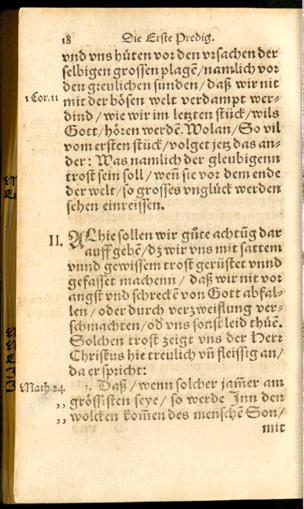 18 Die Erste Predig.
vnd vns hüten vor den vrsachen der
selbigen grossen plagē/namlich vor
den greulichen sunden/daß wir nit
1 Cor. 11 mit der bösen welt verdampt wer-
dind/wie wir im letzten stück/wils
Gott/hören werdē. Wolan/So vil
vom ersten stück/volget jetz das an-
der: Was namlich der gleubigenn
trost sein soll/weñ sie vor dem ende
der welt/so grosses vnglück werden
sehen einreissen.
II. Alhie sollen wir gůte achtũg dar
auff gebē/dz wir vns mit sattem
vnnd gewissem trost gerüstet vnnd
gefasset machenn/daß wir nit vor
angst vnd schreckē von Gott abfal-
len/oder durch verzweiflung ver-
schmachten/od vns sonst leid thuē.
Solchen trost zeigt vns der Herr
Christus hie treulich vñ fleissig an/
da er spricht:
Math. 24. 1. Daß/wenn solcher jam̃er am
„ grössisten seye/so werde Inn den
„ wolcken kom̃en des menschē Son/
mit